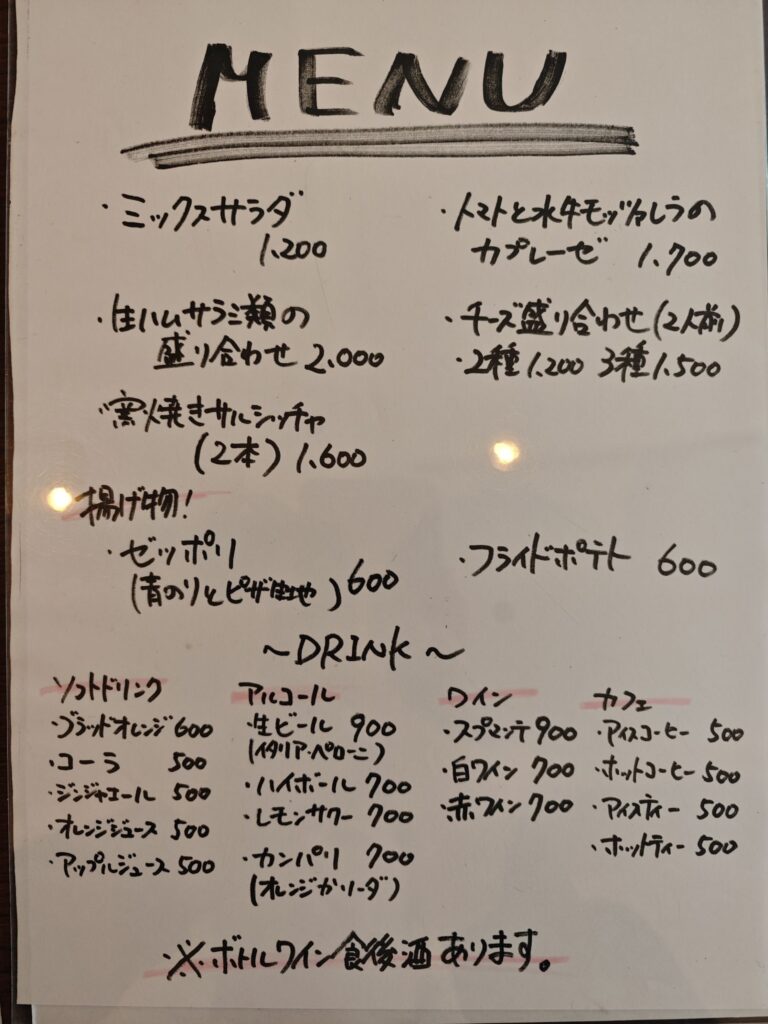 MENU
・ミックスサラダ
1.200
・トマトと水牛モッツァレラの
カプレーゼ 1.700
・生ハムサラミ類の
盛り合わせ 2.000
・チーズ盛り合わせ(2人前)
・2種 1.200 3種 1.500
・窯焼きサルシッチャ
(2本) 1.600
揚げ物!
・ゼッポリ
(青のりとピザ生地) 600
・フライドポテト 600
～DRINK～
ソフトドリンク
・ブラッドオレンジ 600
・コーラ 500
・ジンジャエール 500
・オレンジジュース 500
・アップルジュース 500
アルコール
・生ビール 900
(イタリア・ペローニ)
・ハイボール 700
・レモンサワー 700
・カンパリ 700
(オレンジかソーダ)
ワイン
・スプマンテ 900
・白ワイン 700
・赤ワイン 700
カフェ
・アイスコーヒー 500
・ホットコーヒー 500
・アイスティー 500
・ホットティー 500
※・ボトルワイン食後酒あります。